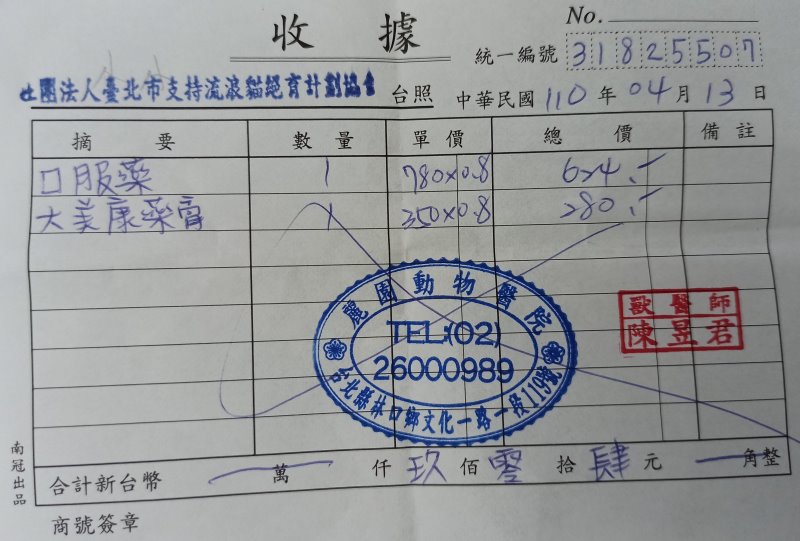 收據
No.
統一編號 31825507
社團法人臺北市支持流浪貓絕育計劃協會 台照 中華民國 110 年 04 月 13 日
摘要 數量 單價 總價 備註
口服藥 1 780×0.8 624.-
大美康藥膏 1 350×0.8 280.-
麗園動物醫院
TEL:(02)
26000989
台北縣林口鄉文化一路一段119號
獸醫師
陳昱君
合計新台幣 萬 仟 玖 佰 零 拾 肆 元 角整
商號簽章
南冠出品